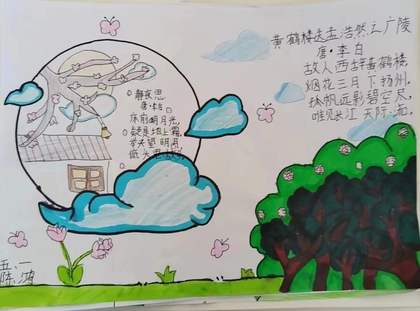 黄鹤楼送孟浩然之广陵
唐·李白
故人西辞黄鹤楼,
烟花三月下扬州,
孤帆远影碧空尽,
唯见长江天际流,
静夜思
唐·李白
床前明月光,
疑是地上霜,
举头望明月,
低头思故乡,
五、一
陈